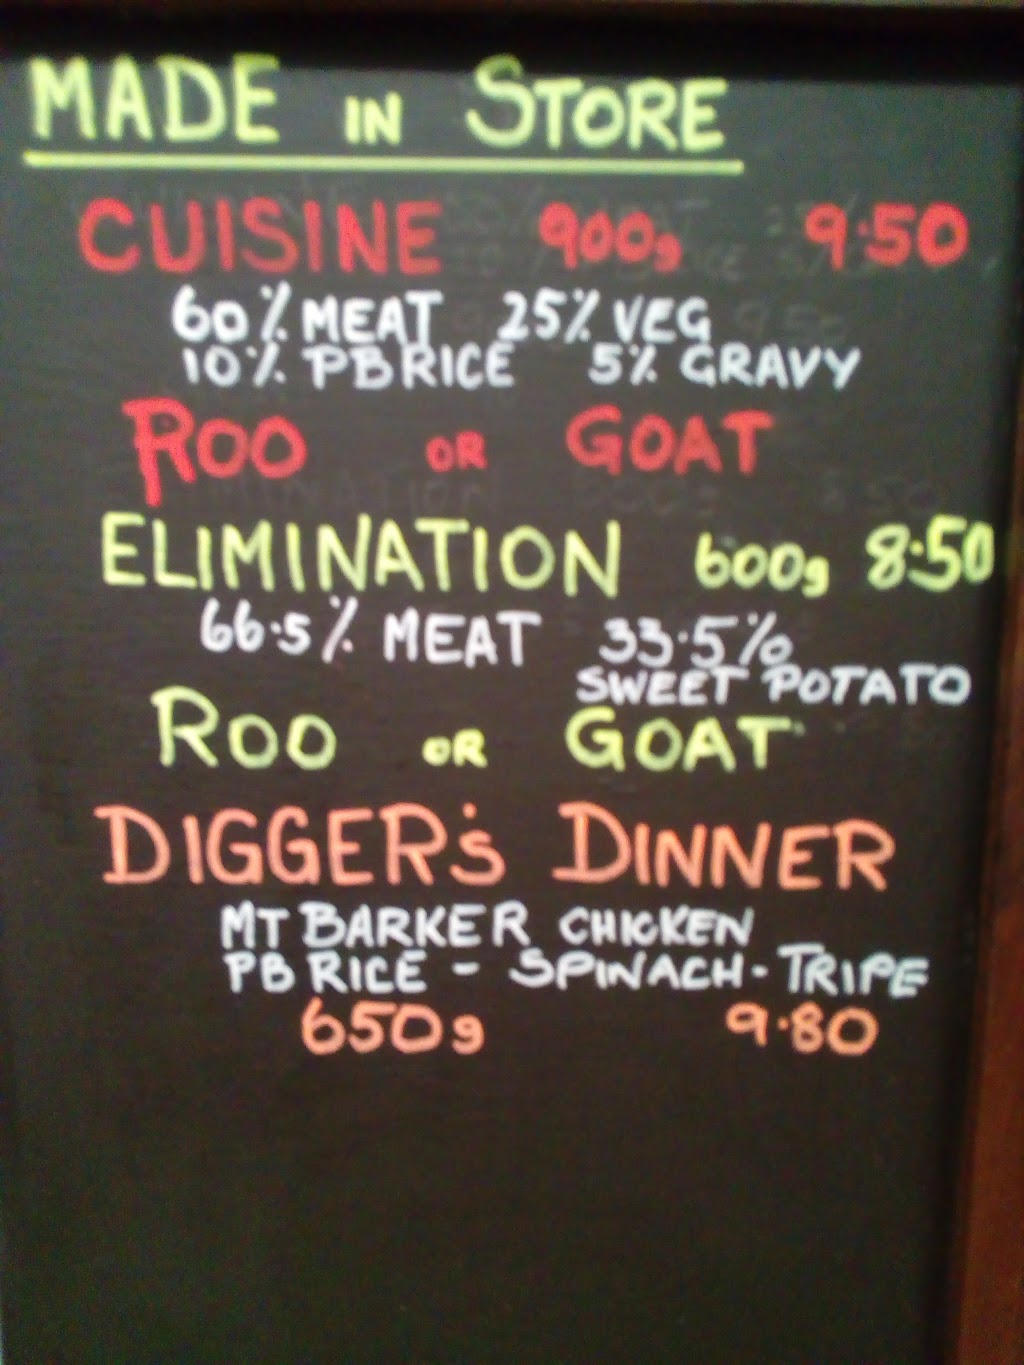 MADE IN STORE
CUISINE 900g 9.50
60% MEAT 25% VEG
10% PB RICE 5% GRAVY
ROO OR GOAT
ELIMINATION 600g 8.50
66.5% MEAT 33.5%
SWEET POTATO
ROO OR GOAT
DIGGER'S DINNER
MT BARKER CHICKEN
PB RICE - SPINACH - TRIPE
650g 9.80